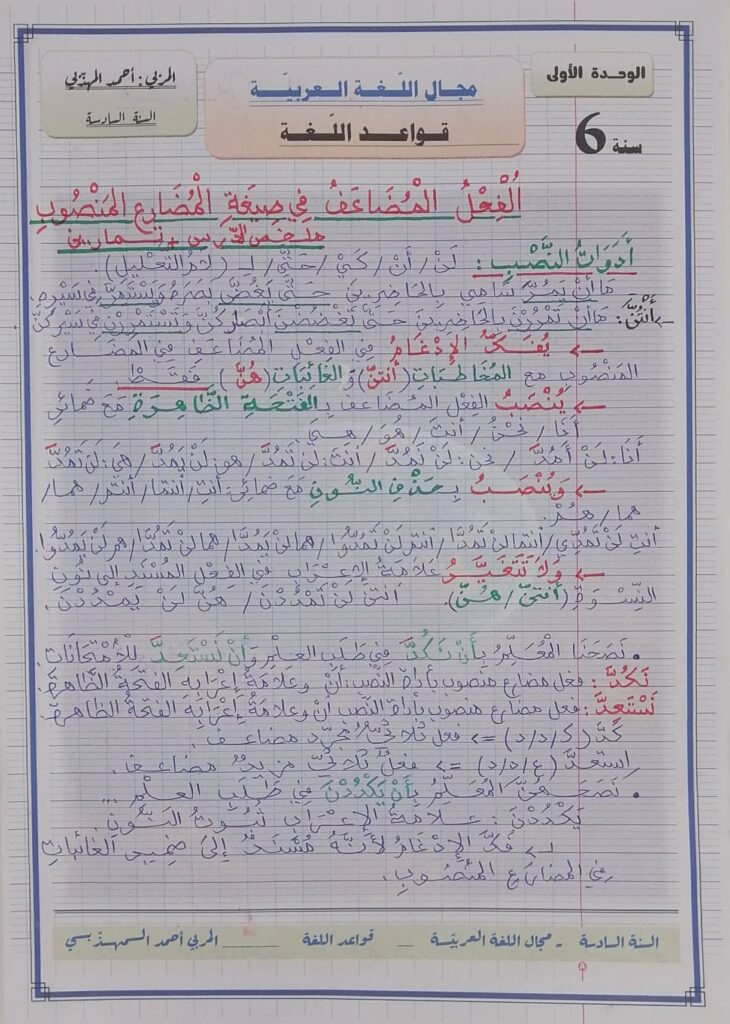 الوحدة الأولى
6 سنة
مجال اللّغة العربيّة
قواعد اللّغة
المربي : أحمد المهذّبي
السنة السادسة
الْفِعْلُ الْمُضَاعَفُ فِي صِيغَةِ الْمُضَارِعِ المَنْصُوبِ
ملخص الدّرس + تمارين
أَدَوَاتُ النَّصْبِ : لَنْ / أَنْ / كَيْ / حَتَّى / لِـ (لامُ التعْلِيلِ).
مَا أَنْ يَمُرَّ سَامِي بِالحَاضِرِينَ حَتَّى يَغُضَّ بَصَرَهُ وَيَسْتَمِرَّ فِي سَيْرِهِ.
أَنْتُنَّ : مَا أَنْ تَمْرُرْنَ بِالحَاضِرِينَ حَتَّى تَغْضُضْنَ أَبْصَارَكُنَّ وَتَسْتَمْرِرْنَ فِي سَيْرِكُنَّ.
<= يُفَكُّ الإِدْغَامُ فِي الفِعْلِ المُضَاعَفِ فِي المضَارِعِ
المَنْصُوبِ مَعَ المُخَاطَبَاتِ (أَنْتُنَّ) وَالغَائِبَاتِ (هُنَّ) فَقَطْ
<= يُنْصَبُ الفِعْلُ المُضَاعَفُ بِالفَتْحَةِ الظَّاهِرَةِ مَعَ ضَمَائِرِ
أَنَا / نَحْنُ / أَنْتَ / هُوَ / هِيَ.
أَنَا: لَنْ أَمُدَّ / نحن: لَنْ نَمُدَّ / أَنْتَ: لَنْ تَمُدَّ / هو: لَنْ يَمُدَّ / هِيَ: لَنْ تَمُدَّ
<= وَيُنْصَبُ بِحَذْفِ النُّونِ مَعَ ضَمَائِرِ: أَنْتِ / أنتما / أنتم / هما /
هما / هُمْ.
أنتِ لَنْ تَمُدِّي / أنتما لن تَمُدَّا / أنتم لَنْ تَمُدُّوا / هما لَنْ يَمُدَّا / هما لَنْ تَمُدَّا / هم لَنْ يَمُدُّوا.
<= وَلَا تَتَغَيَّرُ عَلَامَةُ الإِعْرَابِ فِي الفِعْلِ المُسْنَدِ إِلَى نُونِ
النِّسْوَةِ (أَنْتُنَّ / هُنَّ). أَنْتُنَّ لَنْ تَمْدُدْنَ / هُنَّ لَنْ يَمْدُدْنَ.
• نَصَحَنَا المُعَلِّمُ بِأَنْ نَكُدَّ فِي طَلَبِ العِلْمِ وَأَنْ نَسْتَعِدَّ لِلْاِمْتِحَانَاتِ.
نَكُدَّ : فعل مضارع منصوب بأداة النّصب: أنْ وعَلَامَةُ إِعْرَابِهِ الفَتْحَةُ الظَّاهِرَةُ.
نَسْتَعِدَّ : فعل مضارع منصوب بأداة النّصب أن وعلامةُ إعْرَابِهِ الفَتْحَةُ الظاهرة.
كَدَّ (ك/د/د) => فعل ثلاثيّ مُجَرّد مضاعف.
اِستعدَّ (ع/د/د) => فعل ثلاثيّ مزيدٌ مضاعف.
• نَصَحَهُنَّ المُعَلِّمُ بِأَنْ يَكْدُدْنَ فِي طَلَبِ العِلْمِ ...
يَكْدُدْنَ : علامةُ الإِعْرَابِ ثُبُوتُ النُّونِ.
↳ فُكَّ الإِدْغَامُ لأَنَّهُ مُسْنَدٌ إِلَى ضَمِيرِ الغَائِبَاتِ
فِي المضارعِ المنْصُوبِ.
السنة السادسة - مجال اللغة العربيّة _ قواعد اللغة _____ المربي أحمد المهذّبي